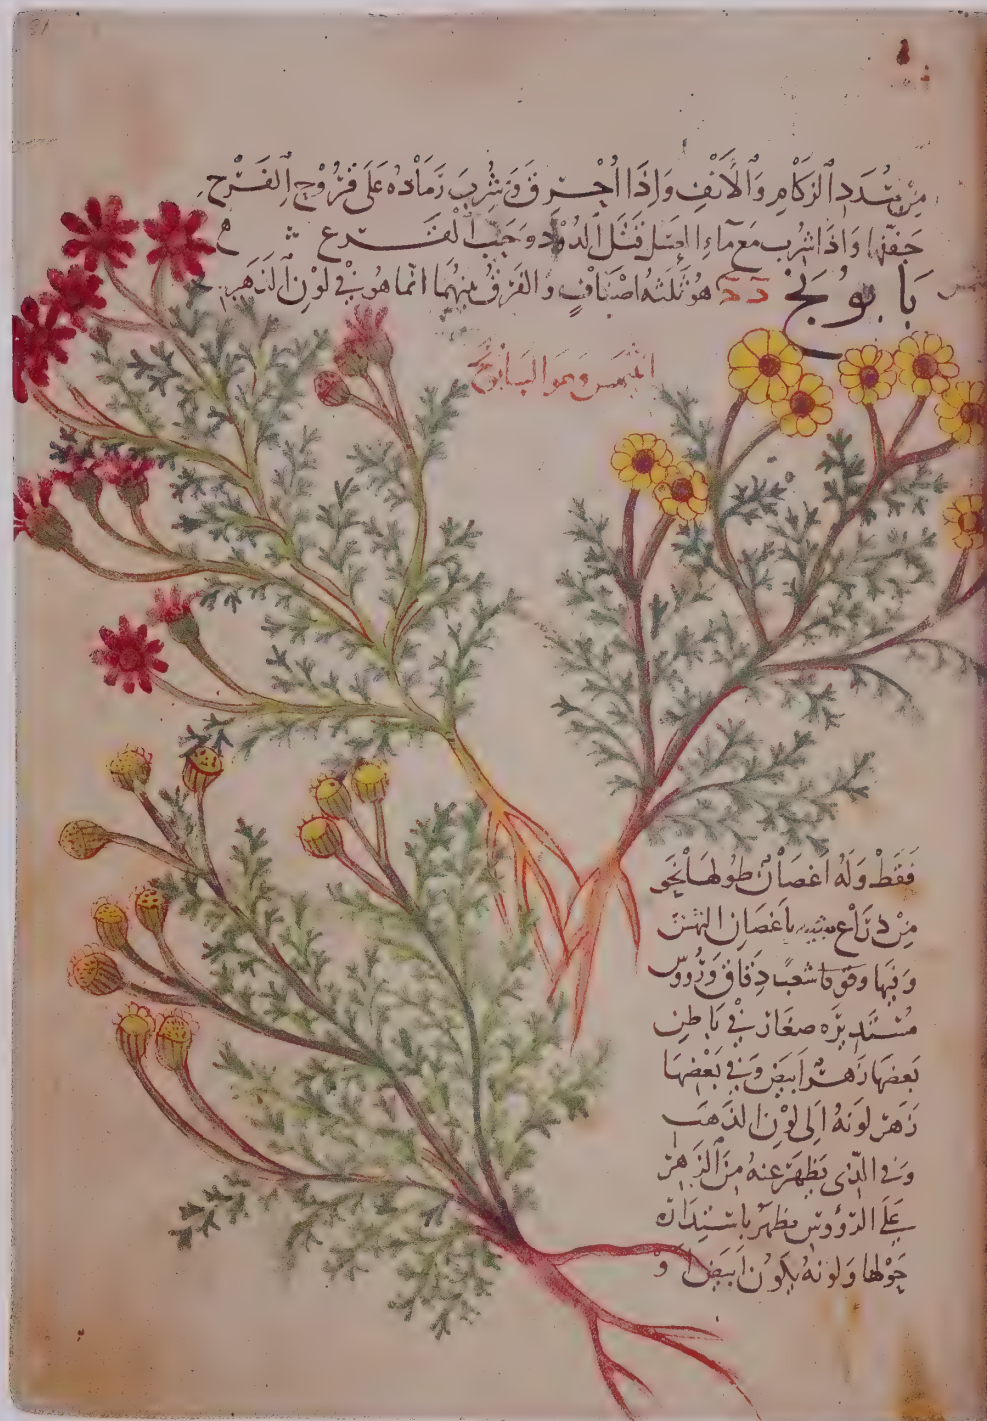 من سدد الزكام والأنف وإذا أحرق وشرب رماده على قروح الفرج
جففها وإذا شرب مع ماء العسل قتل الدود وحب القرع
بابونج هو ثلثه اصناف والفرق بينهما انما هو في لون الزهر
وهو البابونج
فقط وله اغصان طولها نحو
من ذراع باغصان التمنس
وفيها شعب دقاق ورووس
مستديره صغار في باطن
بعضها زهر ابيض وفي بعضها
زهر لونه الى لون الذهب
وفي الذي يظهر عنه من الزهر
على الرؤوس يظهر باستداره
حولها ولونه يكون ابيض او